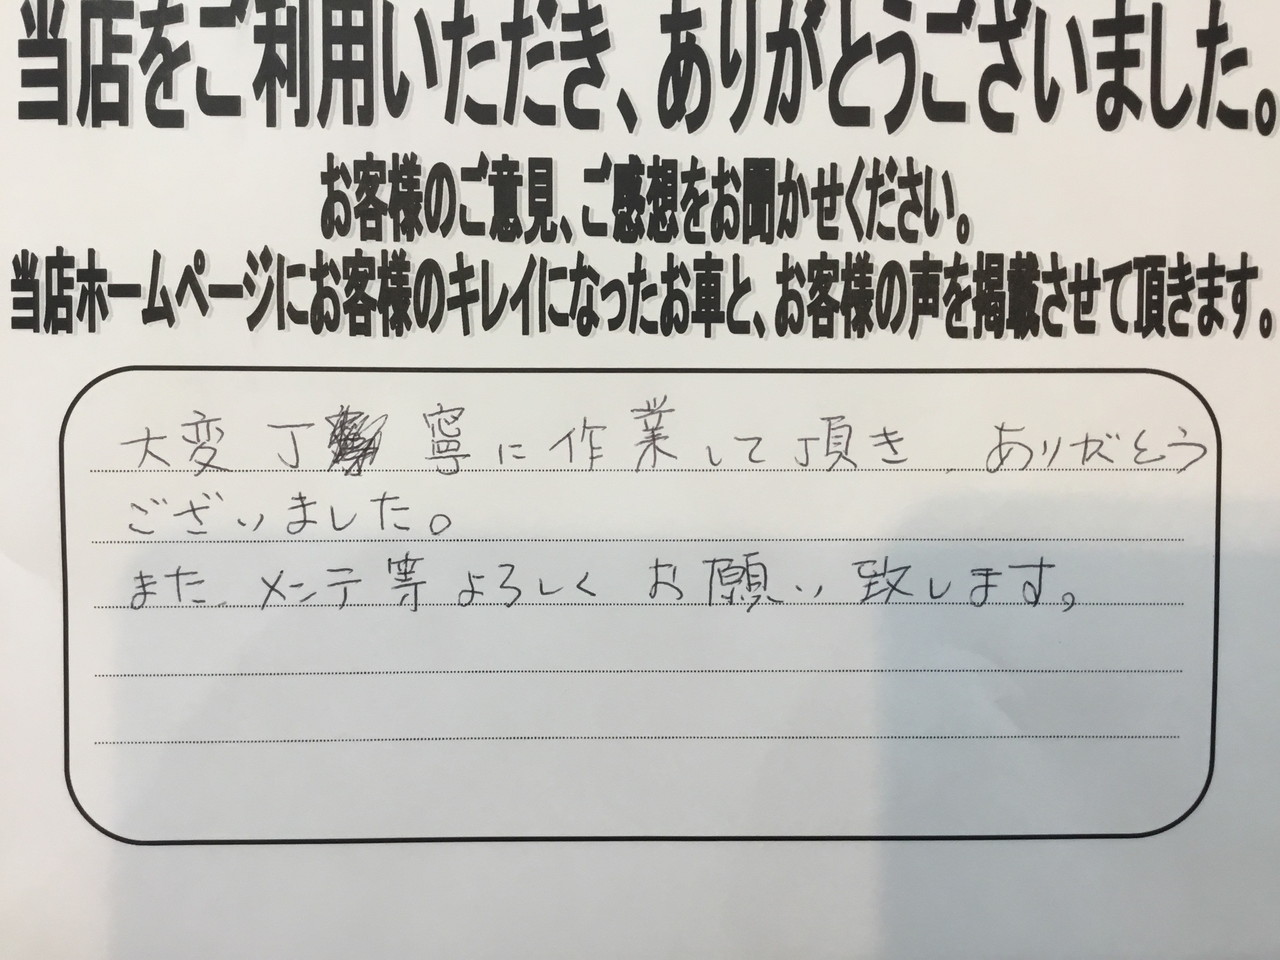 当店をご利用いただき、ありがとうございました。
お客様のご意見、ご感想をお聞かせください。
当店ホームページにお客様のキレイになったお車と、お客様の声を掲載させて頂きます。
大変丁寧に作業して頂き、ありがとう
ございました。
また、メンテ等よろしくお願い致します。